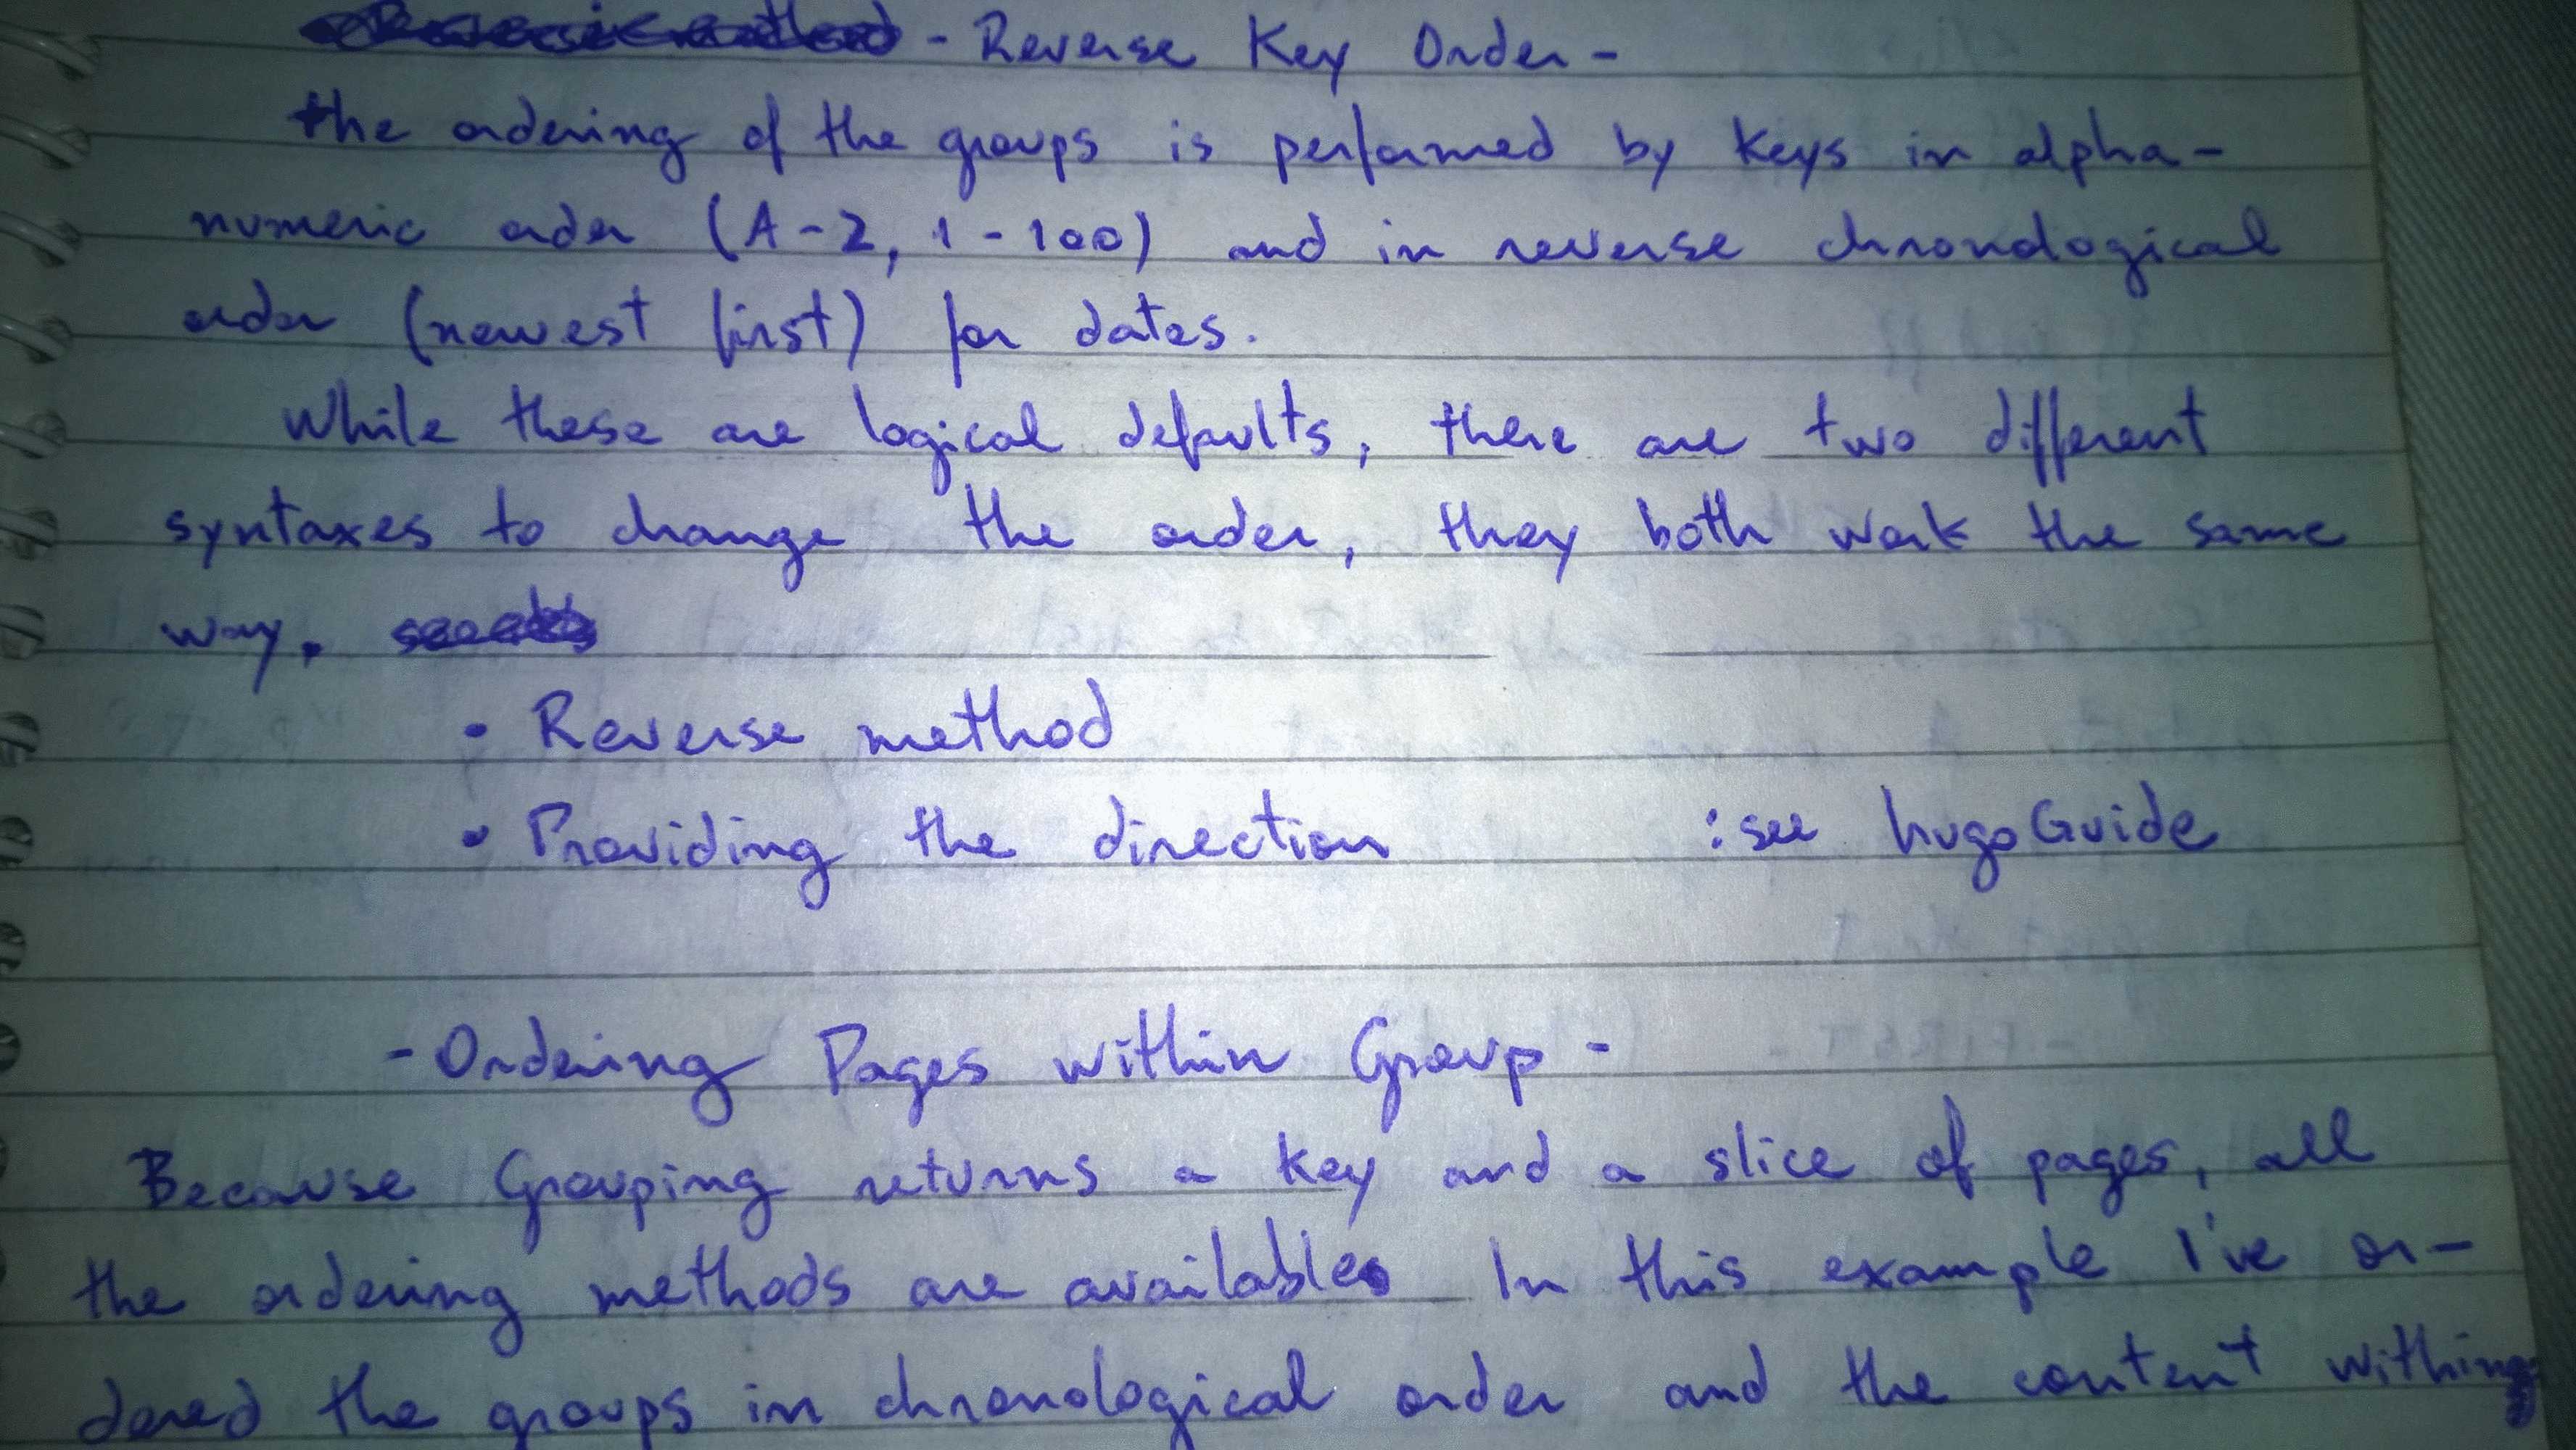 - Reverse Key Order -
the ordering of the groups is performed by keys in alpha-
numeric order (A-Z, 1-100) and in reverse chronological
order (newest first) for dates.
While these are logical defaults, there are two different
syntaxes to change the order, they both work the same
way.
• Reverse method
• Providing the direction : see hugoGuide
- Ordering Pages within Group -
Because Grouping returns a key and a slice of pages, all
the ordering methods are available. In this example I've or-
dered the groups in chronological order and the content within